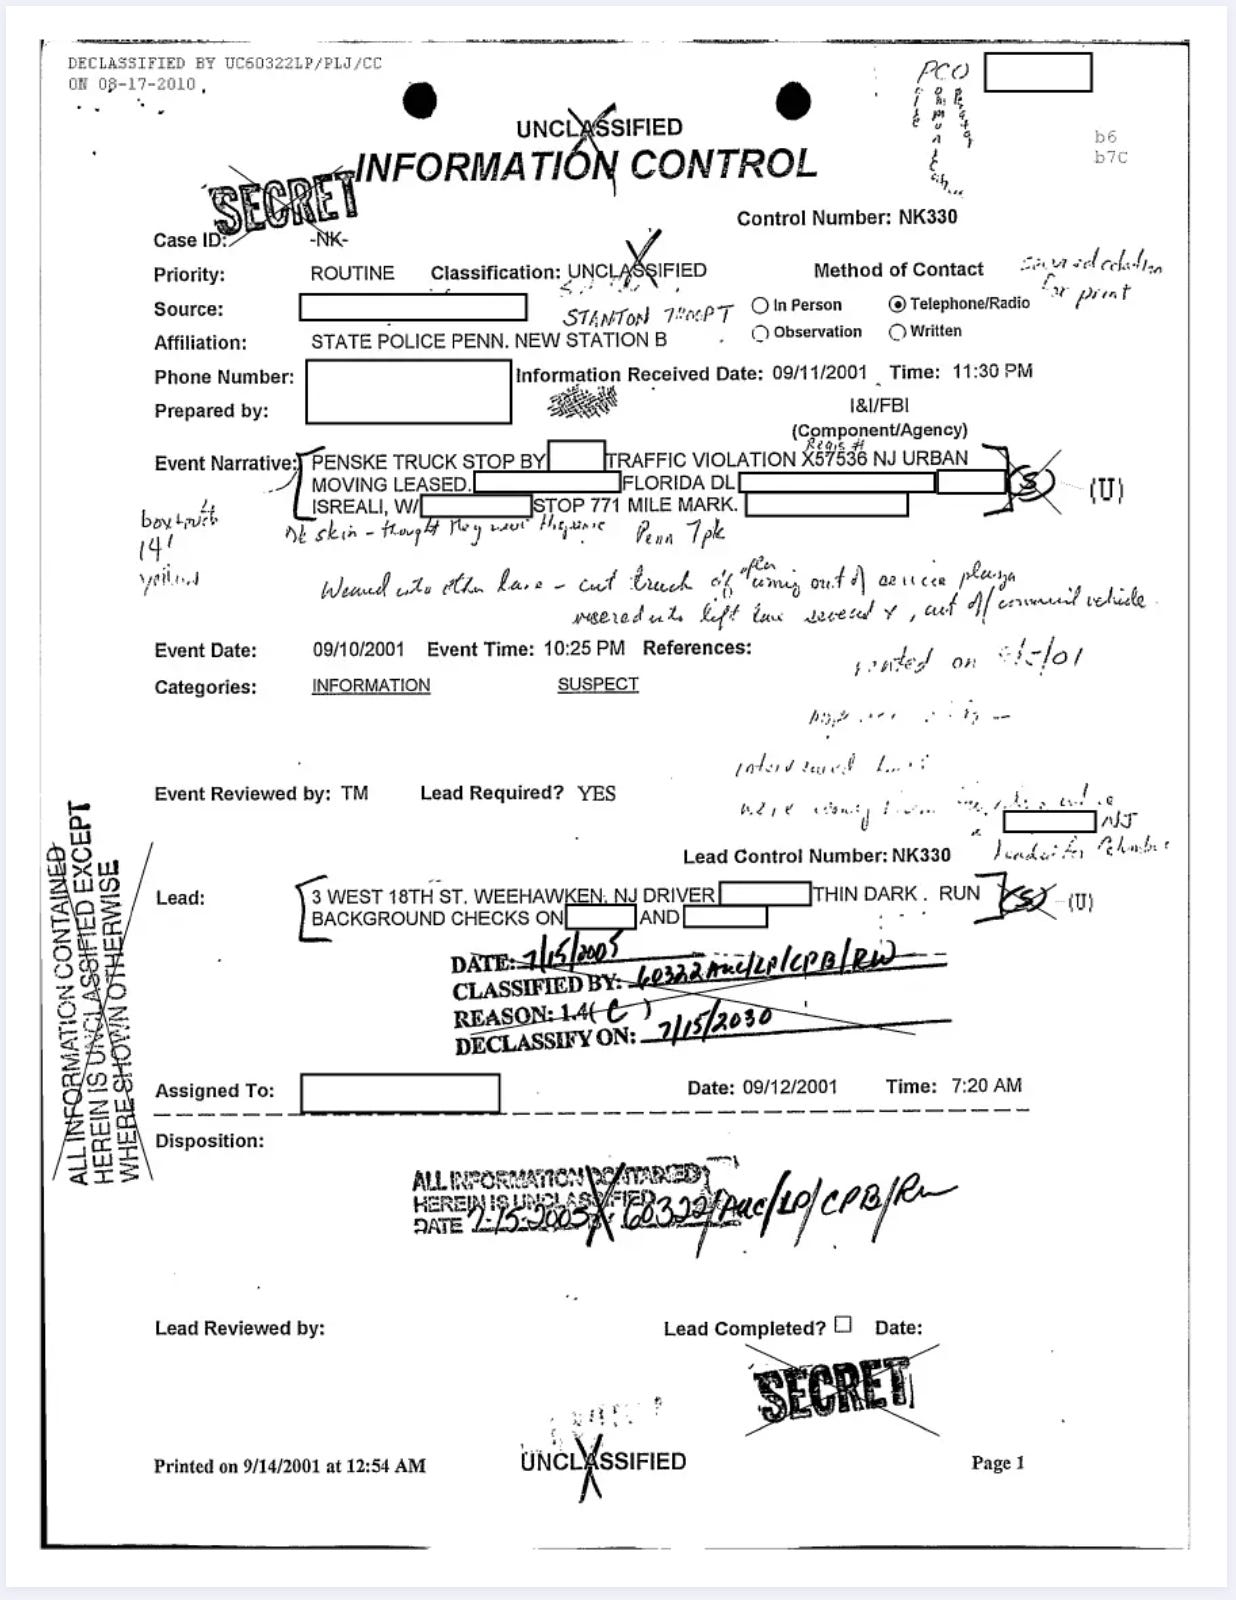 DECLASSIFIED BY UC60322LP/PLJ/CC
ON 08-17-2010
PCO
b6
b7C
UNCLASSIFIED
INFORMATION CONTROL
SECRET
Control Number: NK330
Case ID: -NK-
Priority: ROUTINE Classification: UNCLASSIFIED Method of Contact
for print
Source: STANTON In Person Telephone/Radio
Observation Written
Affiliation: STATE POLICE PENN. NEW STATION B
Phone Number: Information Received Date: 09/11/2001 Time: 11:30 PM
Prepared by: I&I/FBI
(Component/Agency)
Regis #
Event Narrative: PENSKE TRUCK STOP BY TRAFFIC VIOLATION X57536 NJ URBAN
MOVING LEASED. FLORIDA DL (S) (U)
ISREALI, W/ STOP 771 MILE MARK.
box truck
14'
Dk skin - thought they were Penn Tpk
yellow
Weaved into other lane - cut truck off after coming out of service plaza
veered into left lane several x, cut off commercial vehicle
Event Date: 09/10/2001 Event Time: 10:25 PM References:
rented on
Categories: INFORMATION SUSPECT
Event Reviewed by: TM Lead Required? YES
were coming from
NJ
headed for Columbus
Lead Control Number: NK330
Lead: 3 WEST 18TH ST. WEEHAWKEN, NJ DRIVER THIN DARK . RUN (S) (U)
BACKGROUND CHECKS ON AND
DATE: 7/15/2005
CLASSIFIED BY: 60322AUC/LP/CPB/RW
REASON: 1.4( C )
DECLASSIFY ON: 7/15/2030
ALL INFORMATION CONTAINED
HEREIN IS UNCLASSIFIED EXCEPT
WHERE SHOWN OTHERWISE
Assigned To: Date: 09/12/2001 Time: 7:20 AM
Disposition:
ALL INFORMATION CONTAINED
HEREIN IS UNCLASSIFIED
DATE 7-15-2005 60322/AUC/LP/CPB/RW
Lead Reviewed by: Lead Completed? Date:
SECRET
Printed on 9/14/2001 at 12:54 AM UNCLASSIFIED Page 1